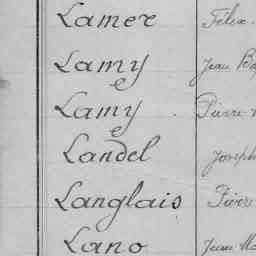 Lamer Félix
Lamy Jean Ba
Lamy Pierre
Landel Joseph
Langlais Pierre
Lano Jean Ma